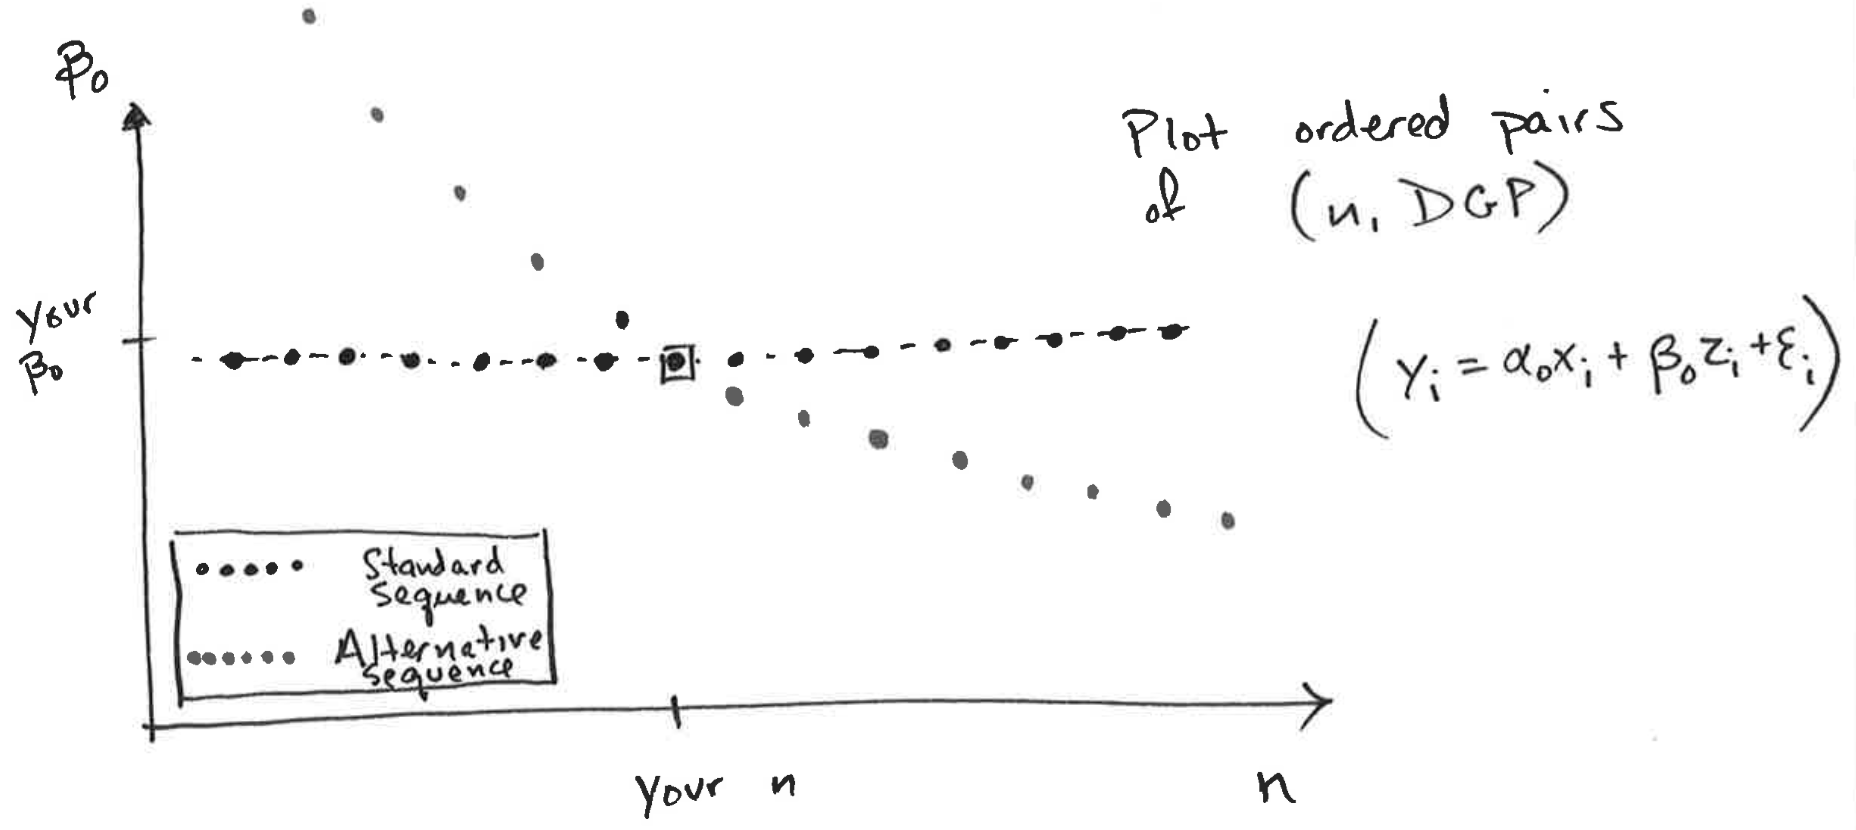 β₀
Plot ordered pairs
of (n, DGP)
Your
β₀
(Yᵢ = α₀xᵢ + β₀zᵢ + εᵢ)
Standard
Sequence
Alternative
Sequence
Your n
n